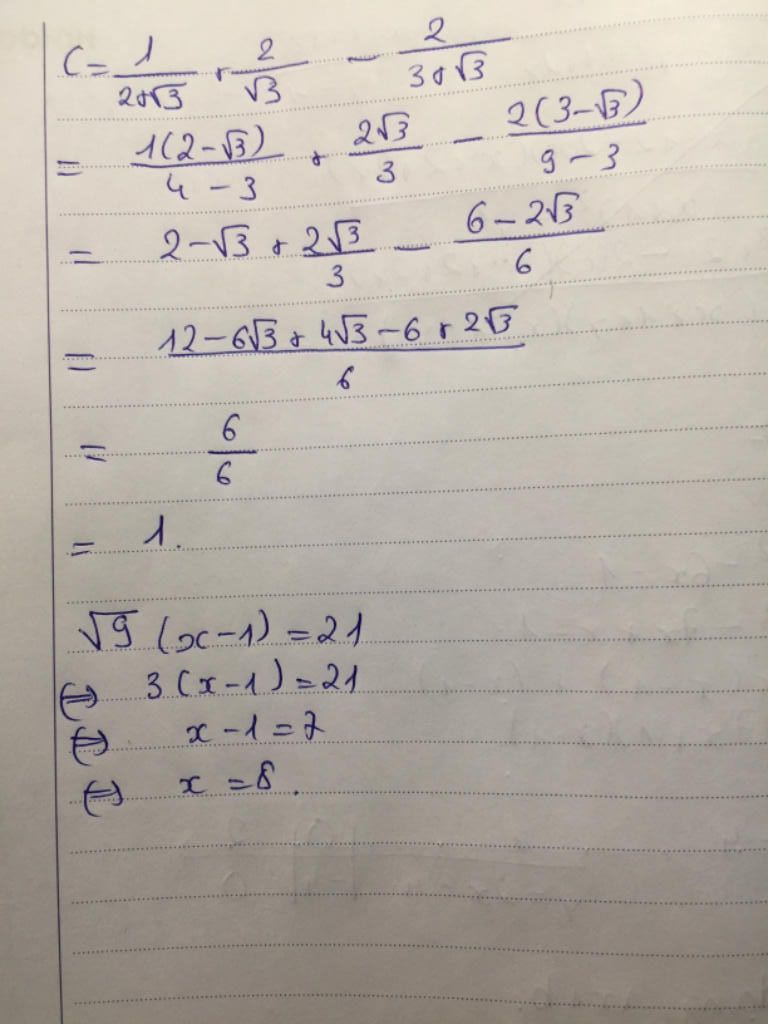 C = 1/(2+√3) + 2/√3 - 2/(3+√3)
= 1(2-√3)/(4-3) + 2√3/3 - 2(3-√3)/(9-3)
= 2-√3 + 2√3/3 - (6-2√3)/6
= (12-6√3+4√3-6+2√3)/6
= 6/6
= 1.
√9 (x-1) = 21
⇔ 3(x-1) = 21
⇔ x-1 = 7
⇔ x = 8.